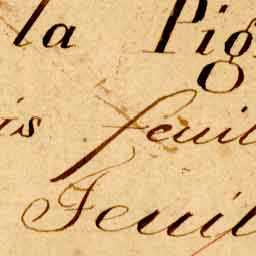 la Pig
is feuil
Feuil